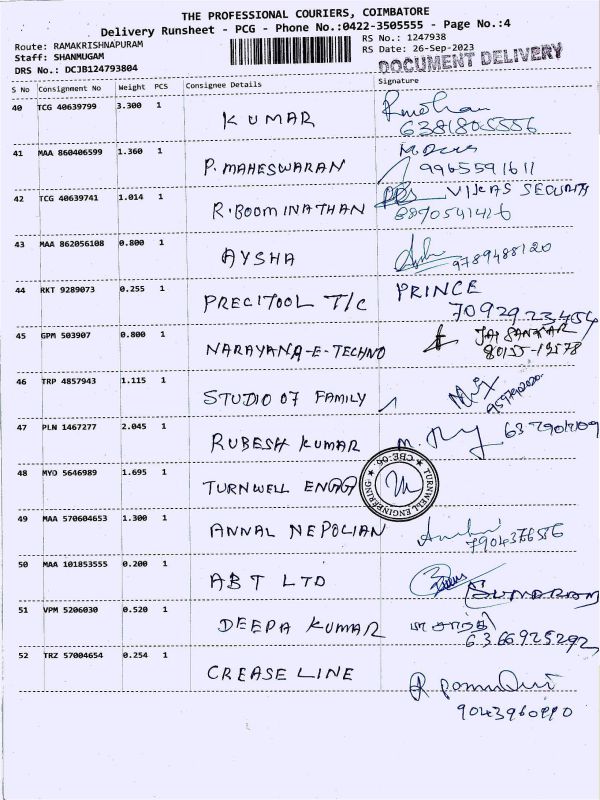 THE PROFESSIONAL COURIERS, COIMBATORE
Delivery Runsheet - PCG - Phone No.:0422-3505555 - Page No.:4
Route: RAMAKRISHNAPURAM
RS No.: 1247938
Staff: SHANMUGAM
RS Date: 26-Sep-2023
DRS No.: DCJB124793804
DOCUMENT DELIVERY
S No Consignment No Weight PCS Consignee Details Signature
40 TCG 40639799 3.300 1 KUMAR
6381805556
41 MAA 860406599 1.360 1 P. MAHESWARAN 9965591611
42 TCG 40639741 1.014 1 R. BOOMINATHAN VIKAS SECURITY
8870541416
43 MAA 862056108 0.800 1 AYSHA 9789488120
44 RKT 9289073 0.255 1 PRECITOOL T/C PRINCE
7092923454
45 GPM 503907 0.800 1 NARAYANA-E-TECHNO JAI SANKAR
80155-19578
46 TRP 4857943 1.115 1 STUDIO OF FAMILY
47 PLN 1467277 2.045 1 RUBESH KUMAR
48 MYO 5646989 1.695 1 TURNWELL ENGG
TURNWELL ENGINEERING ★ CBE-06. ★
49 MAA 570604653 1.300 1 ANNAL NEPOLIAN
50 MAA 101853555 0.200 1 ABT LTD SUNDARAM
51 VPM 5206030 0.520 1 DEEPA KUMAR
6366925292
52 TRZ 57004654 0.254 1 CREASE LINE
9043960990